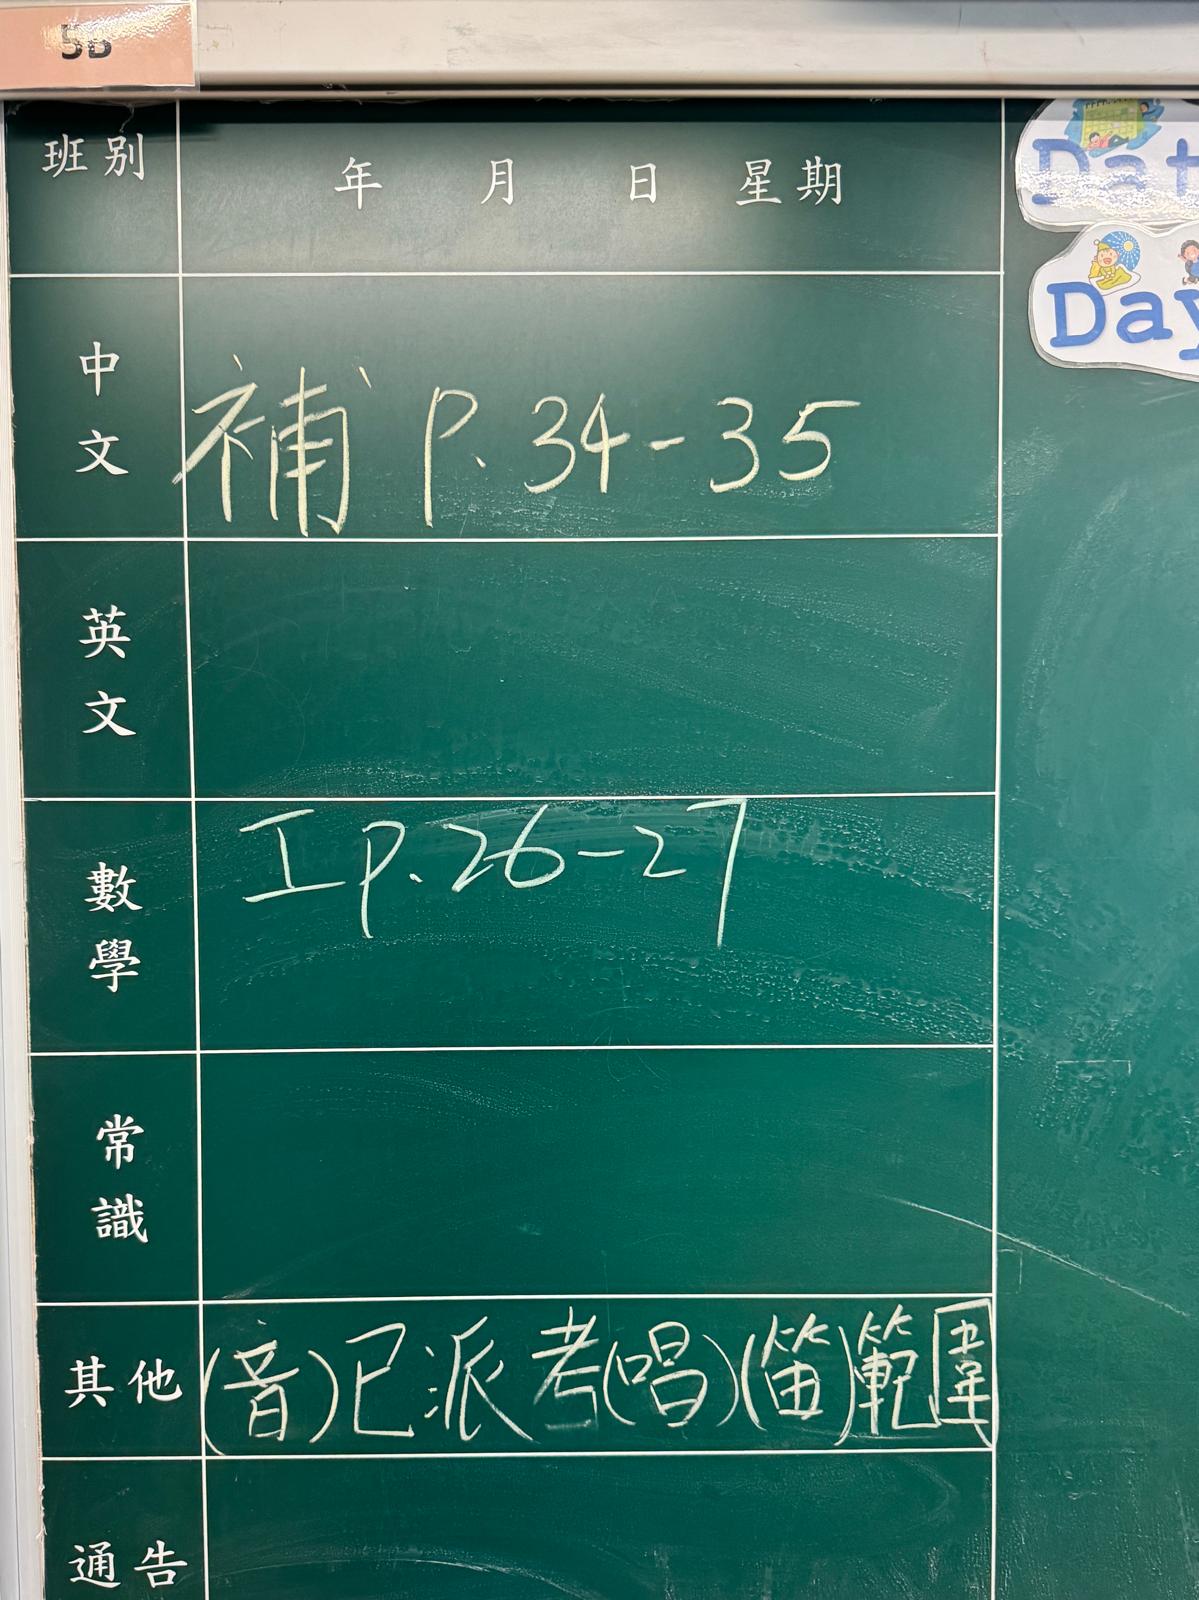 5B
班別 年 月 日 星期
Dat
Day
中文 補 P. 34-35
英文
數學 工 p. 26-27
常識
其他 (音)已派考(唱)(笛)範圍
通告